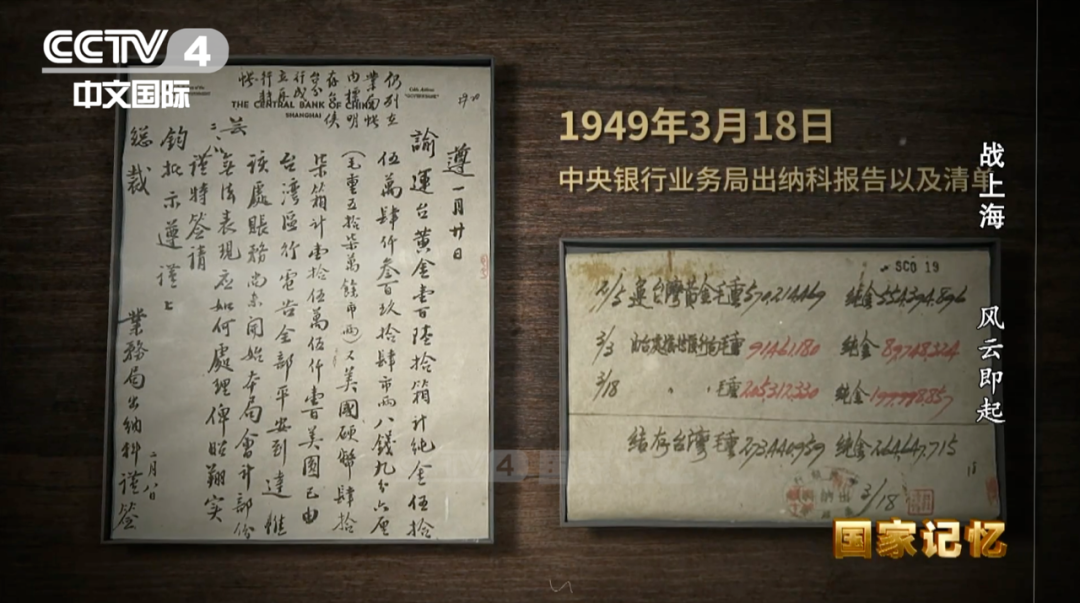 CCTV 4
中文国际
THE CENTRAL BANK OF CHINA
SHANGHAI
遵一月廿日
諭運台黃金壹百陸拾箱計純金伍拾
伍萬肆仟叁百玖拾肆市兩八錢九分六厘
(毛重五拾柒萬餘市兩)又美國硬幣肆拾
柒箱計壹拾伍萬伍仟壹百美圓已由
台灣區行電告全部平安到達惟
該處賬務尚未開始本局會計部份
無法表現應如何處理俾昭翔實
謹特簽請
鈞批示遵謹上
總裁
業務局出納科謹簽
二月八日
1949年3月18日
中央银行业务局出纳科报告以及清单
SCO 19
2/5 運台灣黃金毛重570,214.469 純金554,394.896
3/3 毛重91,461.180 純金89,748.324
3/18 〃 〃 毛重205,312.330 純金199,998.857
結存台灣毛重273,440.959 純金264,647.715
3/18
战上海 风云即起
国家记忆